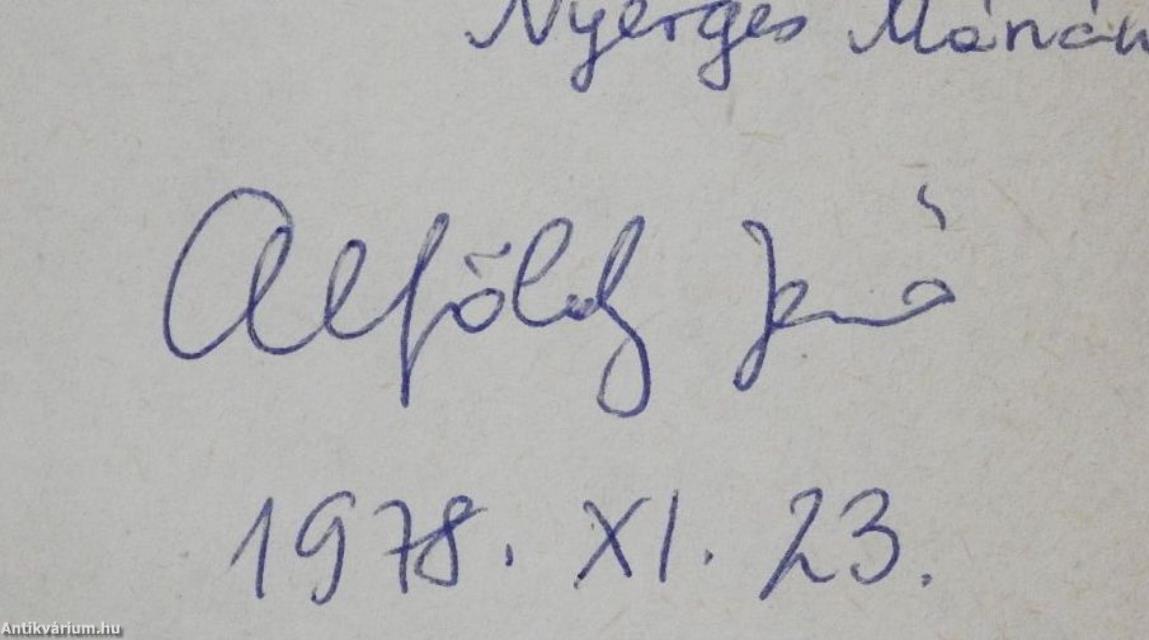 Nyerges Márián
Alföldy Jenő
1978. XI. 23.
Antikvárium.hu